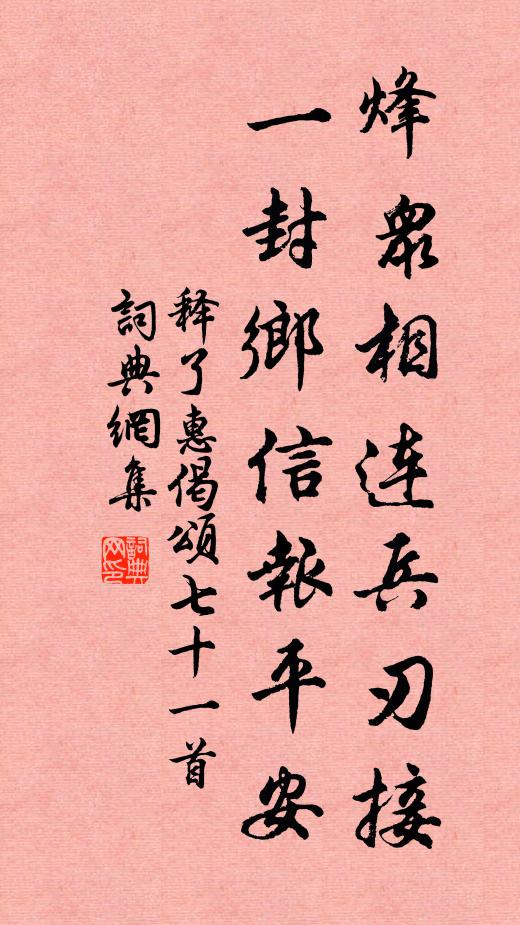 烽眾相連兵刃接
一封鄉信報平安
释了惠偈頌七十一首
詞典網集
詞典网印